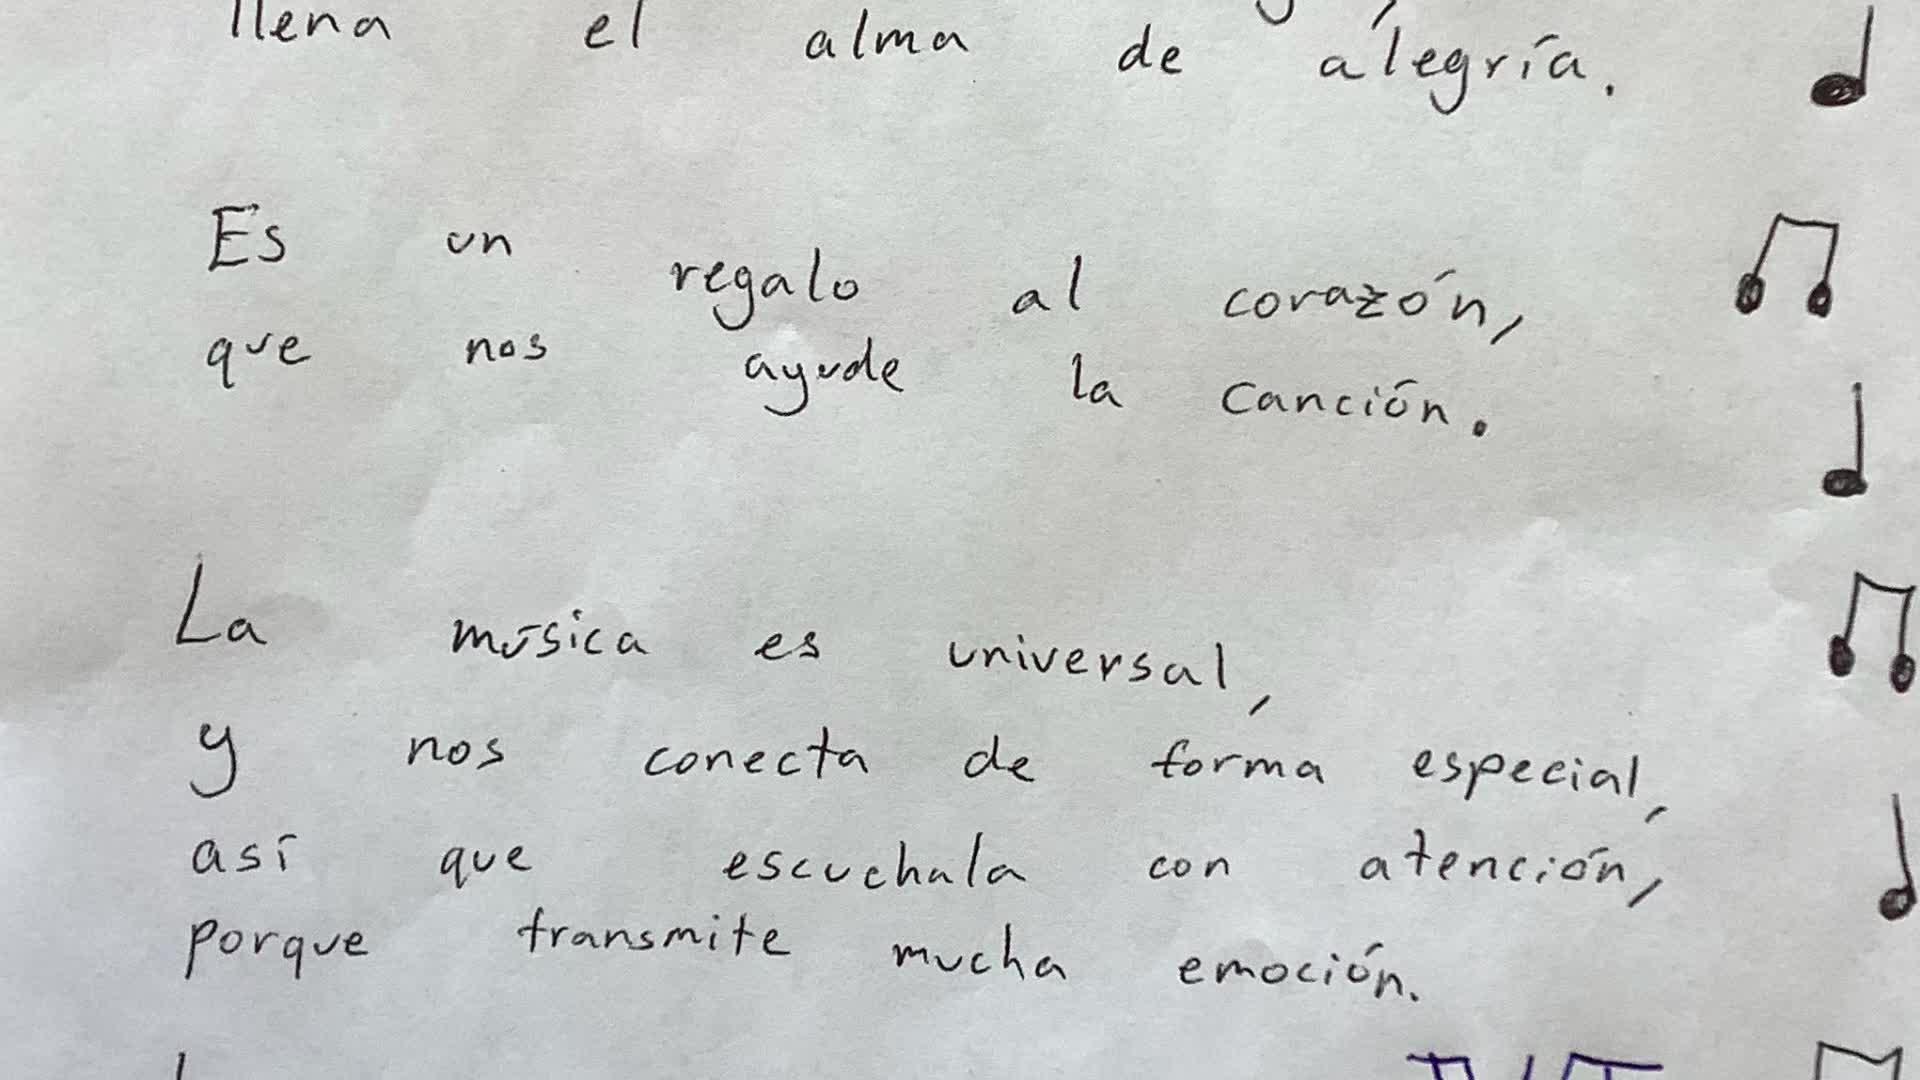 llena el alma de alegría.
Es un regalo al corazón,
que nos ayude la canción.
La música es universal,
y nos conecta de forma especial,
así que escuchala con atención,
porque transmite mucha emoción.